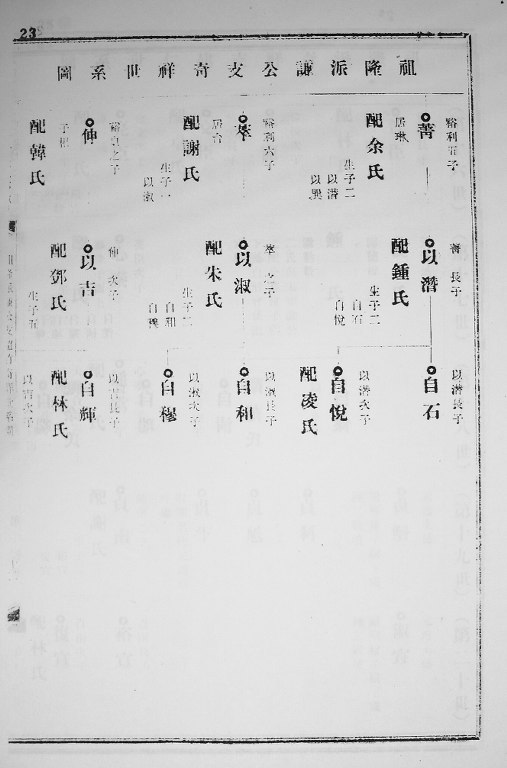 23
祖隆派謙公支奇祥世系圖
裕利五子
菁
居琳
配余氏
生子二
以潛
以巽
裕利六子
萃
居台
配謝氏
生子一
以淑
裕
之子
伸
子
配韓氏
菁 長子
以潛
配鍾氏
生子二
自石
自悅
萃 之子
以淑
配朱氏
生子二
自和
自穆
伸 次子
以吉
配鄧氏
生子五
以潛長子
自石
以潛次子
自悅
配凌氏
以淑長子
自和
以淑次子
自穆
以吉長子
自輝
配林氏
以吉次子